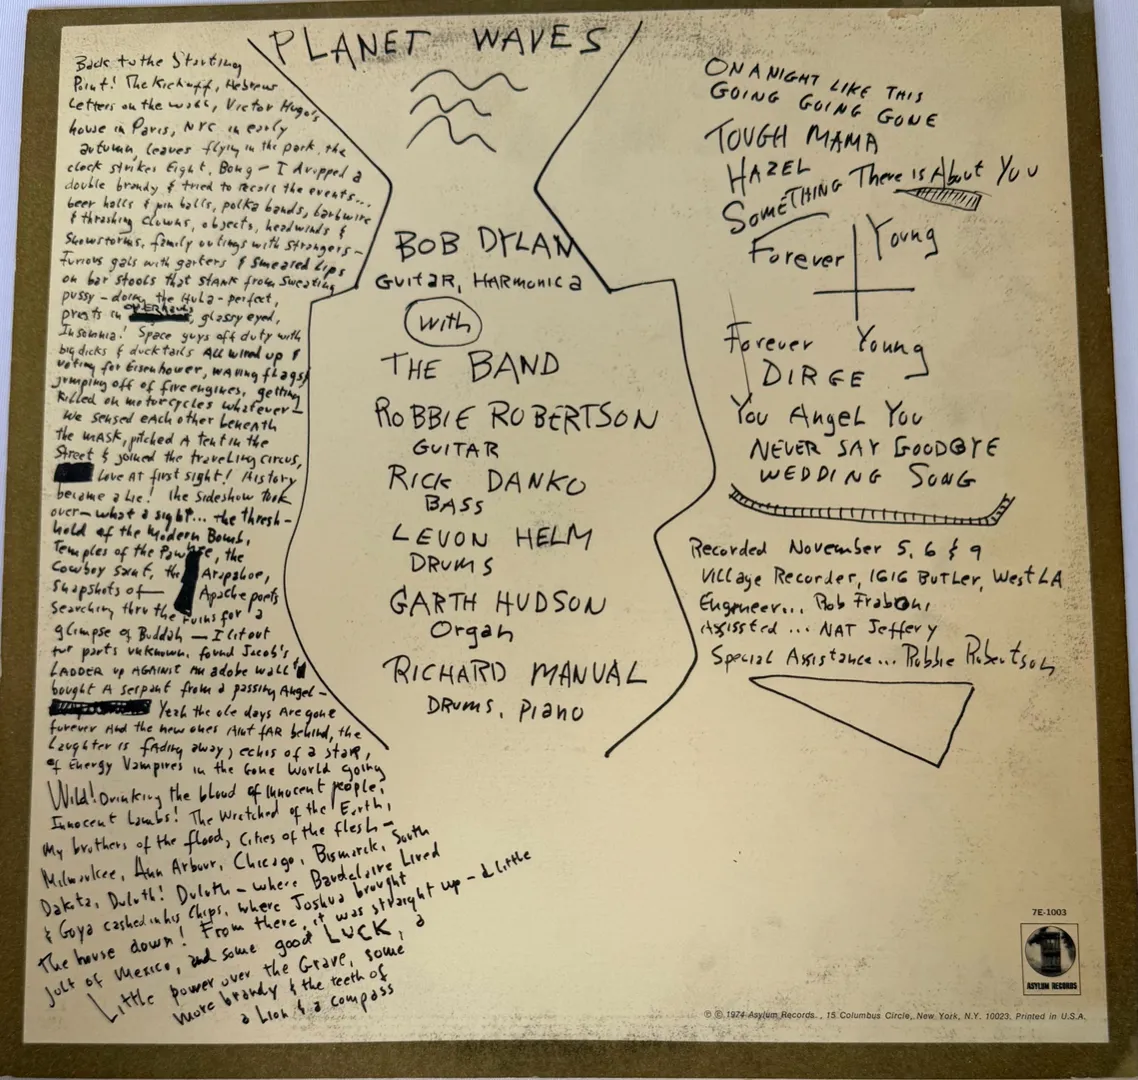 PLANET WAVES
Back to the Starting
Point! The Kickoff, Hebrew
Letters on the wall, Victor Hugo's
house in Paris, NYC in early
autumn, leaves flying in the park, the
clock strikes Eight, Bong — I dropped a
double brandy & tried to recall the events...
beer halls & pin balls, polka bands, barbwire
& thrashing clowns, objects, headwinds &
Snowstorms, family outings with Strangers —
Furious gals with garters & smeared Lips
on bar stools that stank from sweating
pussy — doing the Hula — perfect,
priests in overhauls, glassy eyed,
Insomnia! Space guys off duty with
big dicks & ducktails All wired up &
voting for Eisenhower, waving flags &
jumping off of fire engines, getting
Killed on motorcycles whatever —
We sensed each other beneath
the mask, pitched a tent in the
Street & joined the traveling circus,
Love At first sight! History
became a Lie! the sideshow took
over — what a sight... the thresh-
hold of the Modern Bomb,
Temples of the Pawnee, the
Cowboy saint, the Arapahoe,
Snapshots of — Apache poets
Searching thru the ruins for a
glimpse of Buddah — I lit out
for parts unknown, found Jacob's
LADDER up AGAINST an adobe wall &
bought A serpent from a passing Angel —
Yeah the ole days Are gone
forever And the new ones Aint fAR behind, the
Laughter is fading away, echos of a star,
of Energy Vampires in the Gone World going
Wild! Drinking the blood of innocent people,
Innocent Lambs! The Wretched of the Earth,
My brothers of the flood, Cities of the flesh —
Milwaukee, Ann Arbour, Chicago, Bismarck, South
Dakota, Duluth! Duluth — where Baudelaire Lived
& Goya cashed in his Chips, where Joshua brought
the house down! From there, it was straight up — a little
jolt of Mexico, and some good LUCK, a
Little power over the Grave, some
more brandy & the teeth of
a Lion & a compass
BOB DYLAN
GUITAR, HARMONICA
With
THE BAND
ROBBIE ROBERTSON
GUITAR
RICK DANKO
BASS
LEVON HELM
DRUMS
GARTH HUDSON
Organ
RICHARD MANUAL
DRUMS, PIANO
ON A NIGHT LIKE THIS
GOING GOING GONE
TOUGH MAMA
HAZEL
SOMETHING There is About You
Forever Young
Forever Young
DIRGE
You Angel You
NEVER SAY GOODBYE
WEDDING SONG
Recorded November 5, 6 & 9
Village Recorder, 1616 Butler, West LA
Engineer... Rob Fraboni
Assissted... NAT Jeffery
Special Assistance... Robbie Robertson
7E-1003
ASYLUM RECORDS
© ℗ 1974 Asylum Records., 15 Columbus Circle, New York, N.Y. 10023. Printed in U.S.A.